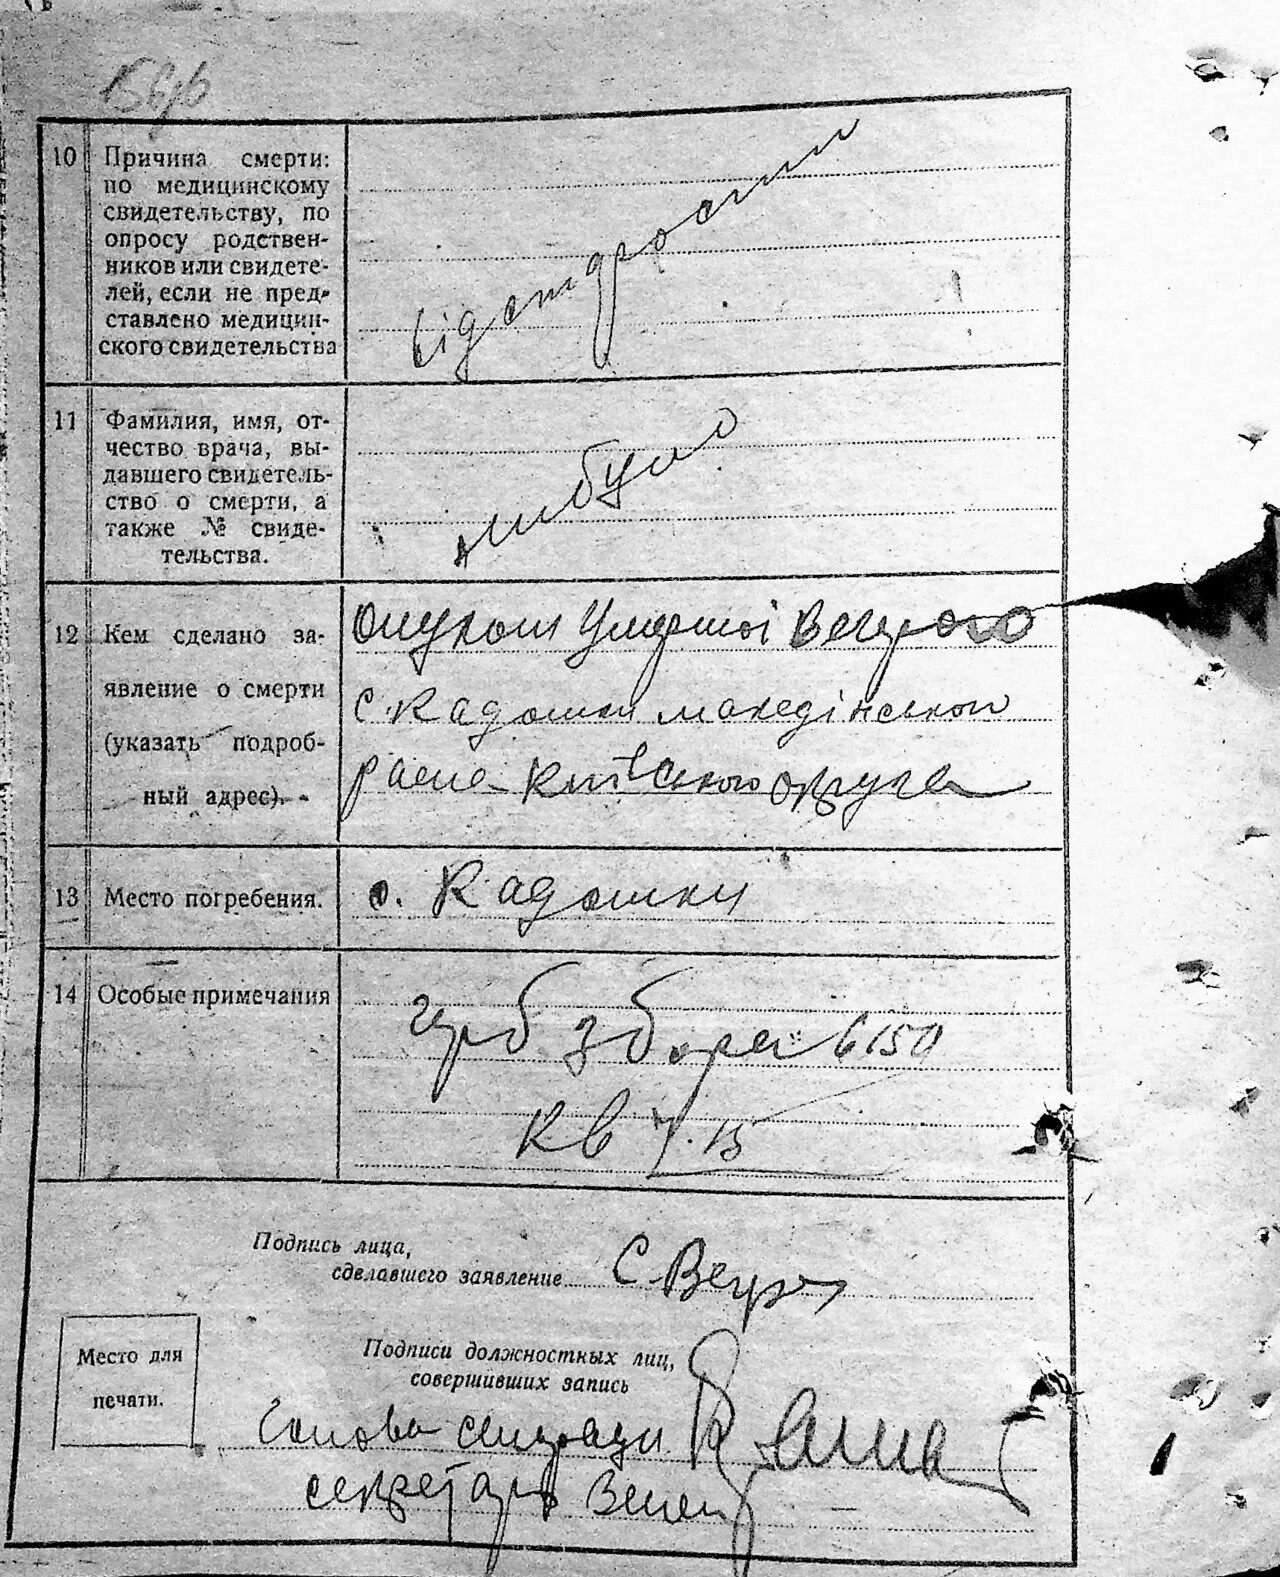 10 Причина смерти:
по медицинскому
свидетельству, по
опросу родствен-
ников или свидете-
лей, если не пред-
ставлено медицин-
ского свидетельства
від старости
11 Фамилия, имя, от-
чество врача, вы-
давшего свидетель-
ство о смерти, а
также № свиде-
тельства.
не було
12 Кем сделано за-
явление о смерти
(указать подроб-
ный адрес).
Онуком умершої
с. Кадомки македінського
Київського округа
13 Место погребения.
с. Кадомки
14 Особые примечания
герб збора 6150
кв 7.15
Подпись лица,
сделавшего заявление
Место для
печати.
Подписи должностных лиц,
совершивших запись
Голова сільради
секретарь